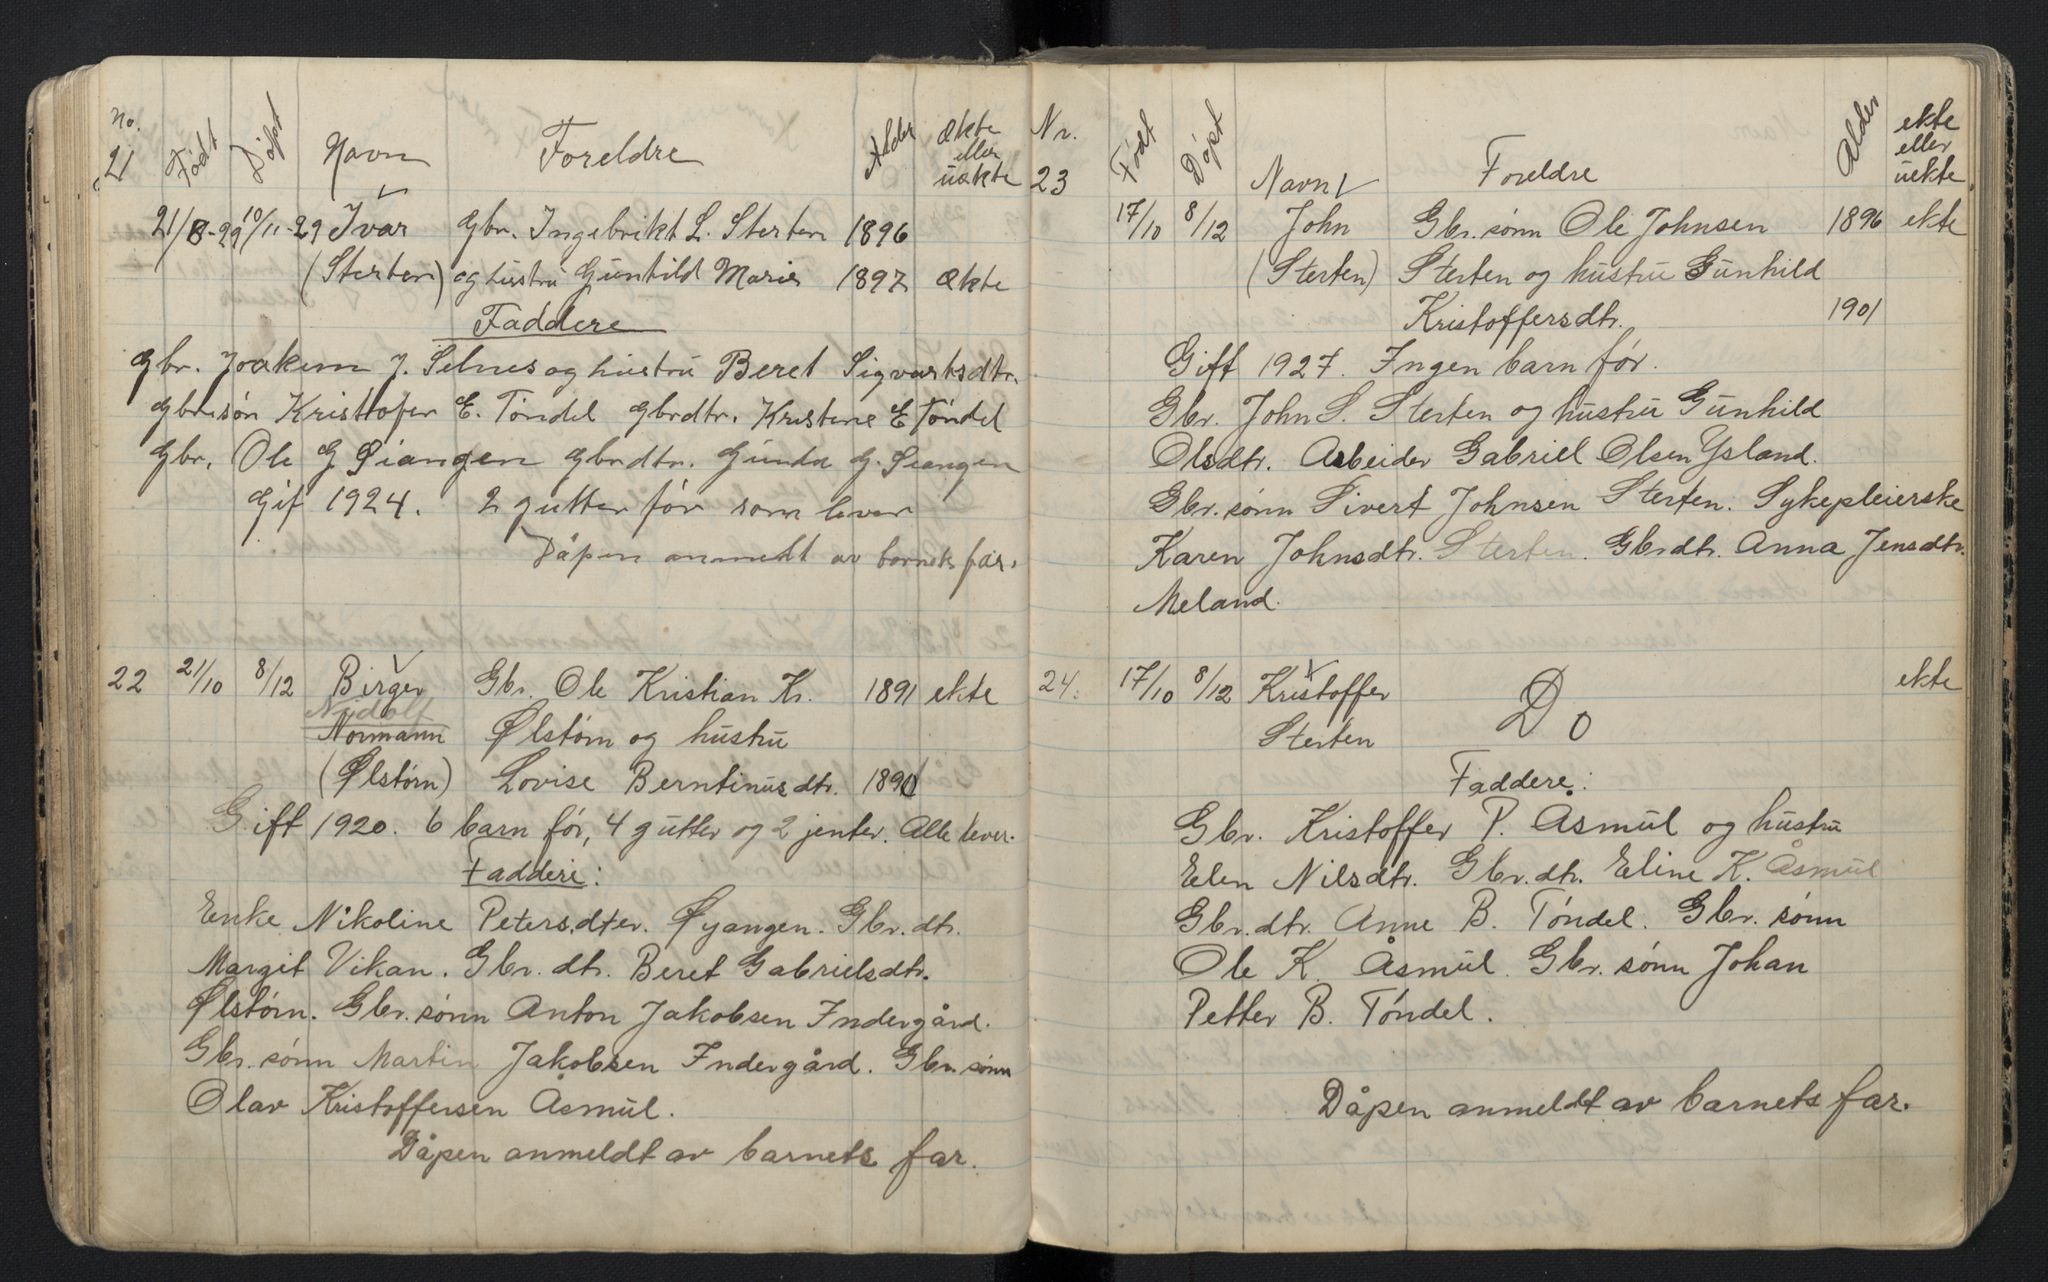 No. Født Døpt Navn Foreldre Alder Ækte
eller
uækte
21
21/8-29 10/11-29 Ivar Gbr. Ingebrikt L. Sterten 1896
(Sterten) og hustru Gunhild Marie 1897 Ækte
Faddere
Gbr. Joakim J. Selnes og hustru Beret Sigvartsdtr.
Gbrsøn Kristofer E. Tøndel Gbrdtr. Kristine E Tøndel
Gbr. Ole G Øiangen Gbrdtr. Gunda G. Øiangen
Gif 1924. 2 gutter før som lever
Dåpen anmelt av barnets far.
22 21/10 8/12 Birger Gbr. Ole Kristian Kr. 1891 ekte
Nidolf
Normann Ølstørn og hustru
(Ølstørn) Lovise Berntinusdtr. 1890
Gift 1920. 6 barn før, 4 gutter og 2 jenter. Alle lever.
Faddere:
Enke Nikoline Petersdter. Øyangen. Gbr. dtr.
Margit Vikan. Gbr. dtr. Beret Gabrielsdtr.
Ølstørn. Gbr. sønn Anton Jakobsen Indergård.
Gbr. sønn Martin Jakobsen Indergård. Gbr. sønn
Olav Kristoffersen Åsmul.
Dåpen anmeldt av barnets far.
Nr. Født Døpt Navn Foreldre Alder ekte
eller
uekte
23
17/10 8/12 John Gbr. sønn Ole Johnsen 1896 ekte
(Sterten) Sterten og hustru Gunhild
Kristoffersdtr. 1901
Gift 1927. Ingen barn før.
Gbr. John S. Sterten og hustru Gunhild
Olsdtr. Arbeider Gabriel Olsen Ysland.
Gbr. sønn Sivert Johnsen Sterten. Sykepleierske
Karen Johnsdtr. Sterten. Gbrdtr. Anna Jensdtr.
Meland.
24. 17/10 8/12 Kristoffer Do ekte
Sterten
Faddere:
Gbr. Kristoffer P. Åsmul og hustru
Elen Nilsdtr. Gbr. dtr. Eline K. Åsmul
Gbr. dtr. Anne B. Tøndel. Gbr. sønn
Ole K. Åsmul. Gbr. sønn Johan
Petter B. Tøndel.
Dåpen anmeldt av barnets far.